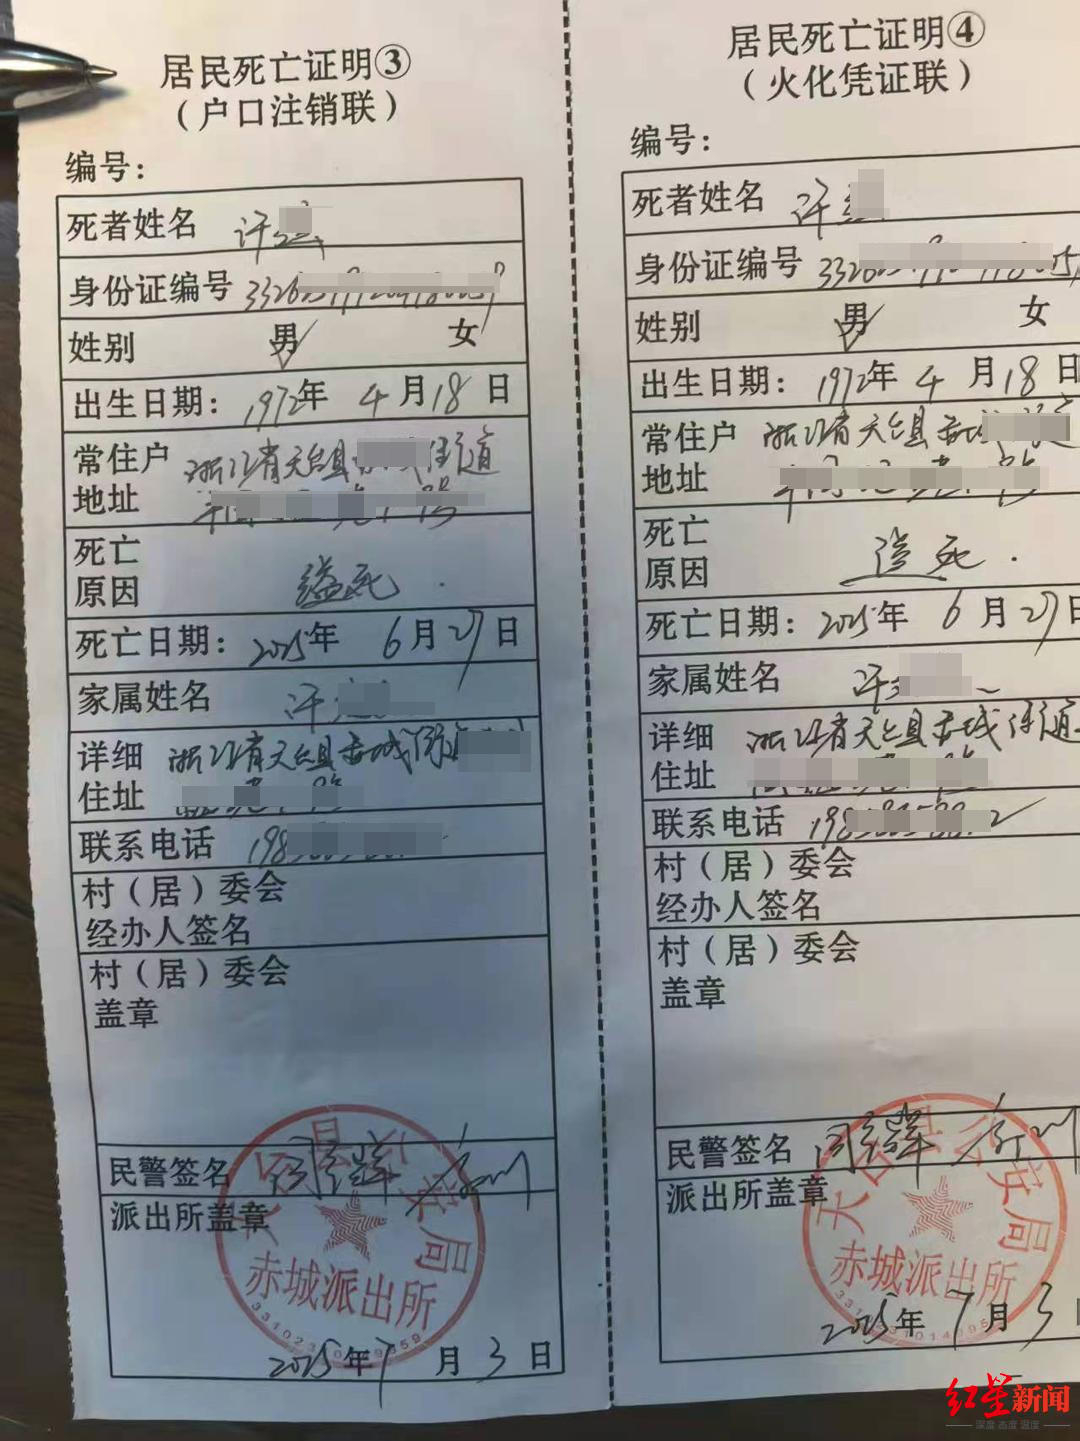 居民死亡证明③
（户口注销联）
编号：
死者姓名 许
身份证编号
姓别 男 女
出生日期：1972年 4月18日
常住户 浙江省天台县 街道
地址
死亡
原因 缢死
死亡日期：2025年 6月27日
家属姓名 许
详细 浙江省天台县赤城街道
住址
联系电话
村（居）委会
经办人签名
村（居）委会
盖章
民警签名
派出所盖章
天台县公安局
赤城派出所
2025年7月3日
居民死亡证明④
（火化凭证联）
编号：
死者姓名 许
身份证编号
姓别 男 女
出生日期：1972年 4月18日
常住户 浙江省天台县赤城 街道
地址
死亡
原因 缢死
死亡日期：2025年 6月27日
家属姓名 许
详细 浙江省天台县赤城街道
住址
联系电话
村（居）委会
经办人签名
村（居）委会
盖章
民警签名
派出所盖章
天台县公安局
赤城派出所
2025年7月3日
红星新闻
深度 态度 温度